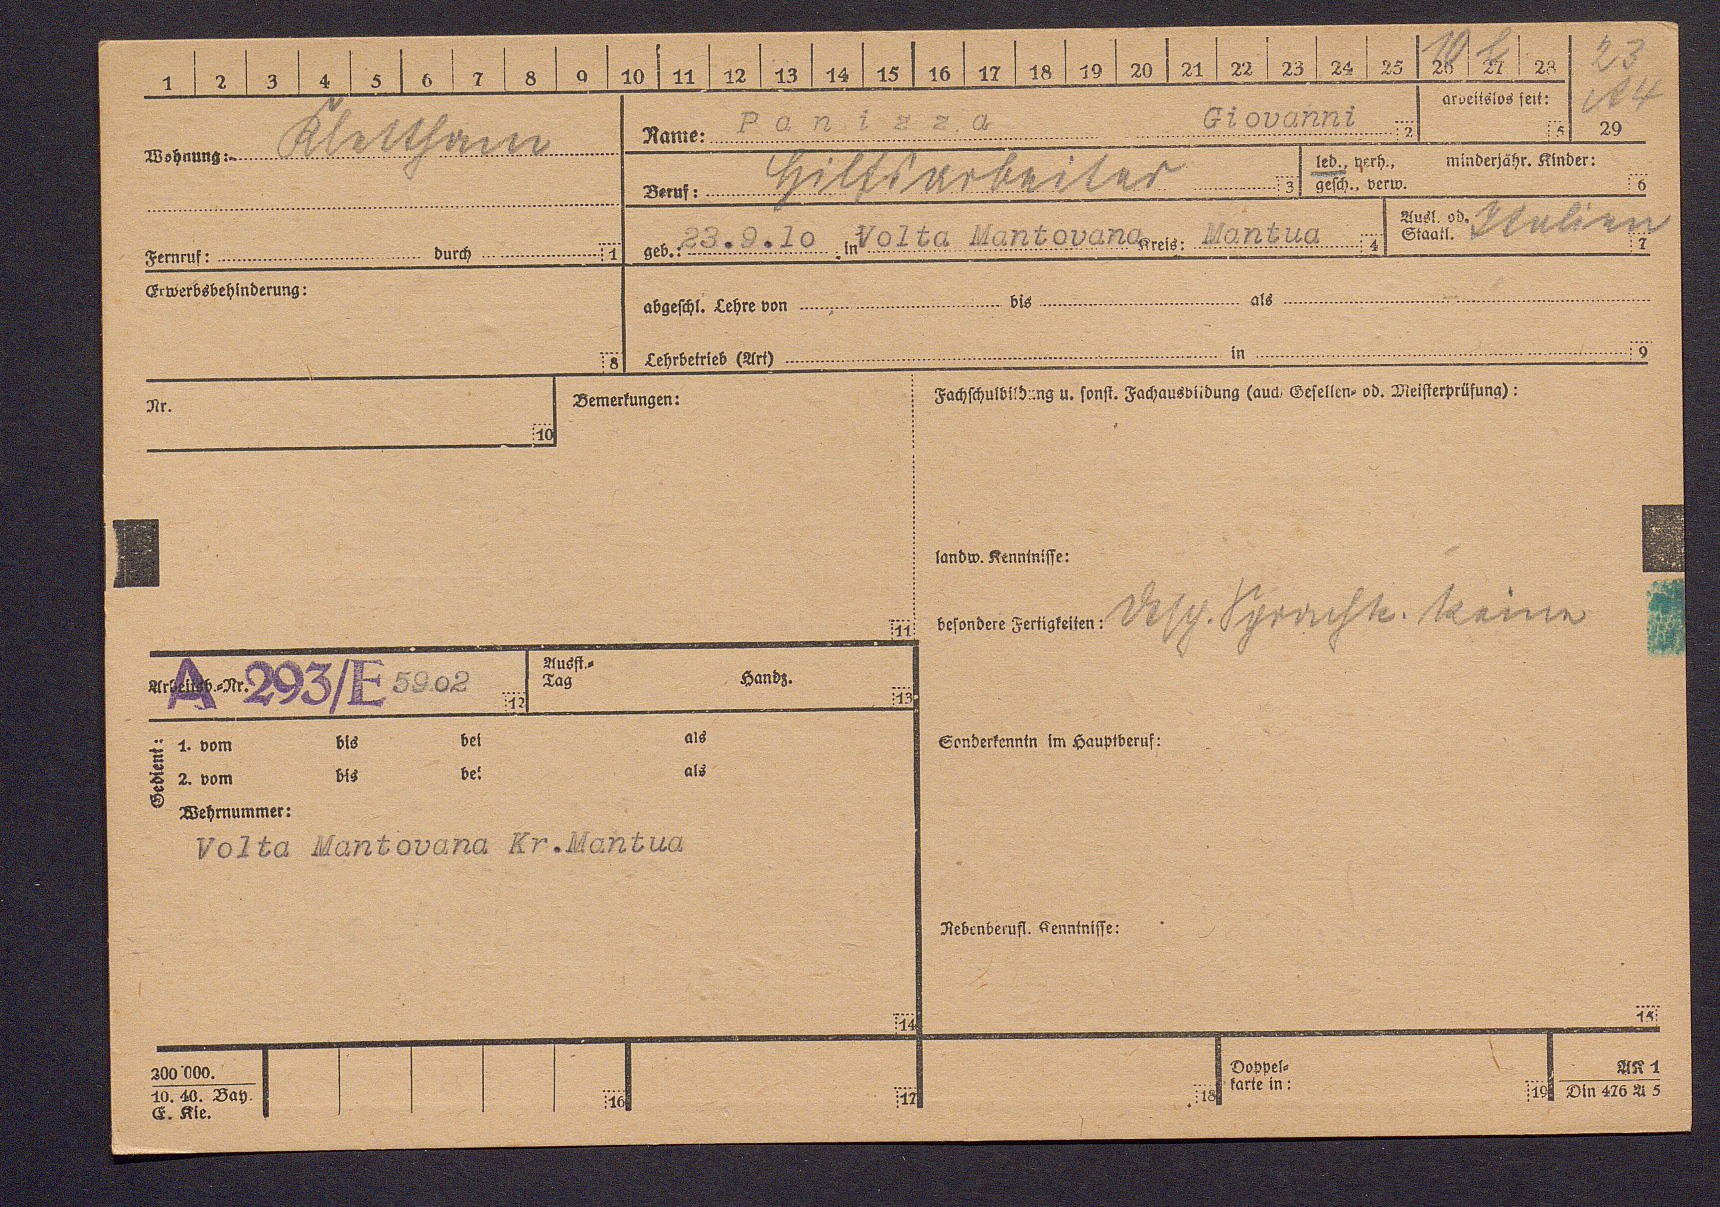 1 2 3 4 5 6 7 8 9 10 11 12 13 14 15 16 17 18 19 20 21 22 23 24 25 26 27 28
23
Wohnung: Klettham
Name: Panizza Giovanni 2
arbeitslos seit: 5
29
Beruf: Hilfsarbeiter 3
led., verh., gesch., verw.
minderjähr. Kinder: 6
Fernruf: durch 1
geb.: 23.9.10 in Volta Mantovana Kreis: Mantua 4
Ausl. od. Staatl. Italien 7
Erwerbsbehinderung: 8
abgeschl. Lehre von bis als
Lehrbetrieb (Art) in 9
Nr. 10
Bemerkungen: 11
Fachschulbildung u. sonst. Fachausbildung (auch Gesellen- od. Meisterprüfung):
landw. Kenntnisse:
besondere Fertigkeiten: Dtsch. Sprachk. keine
Arbeitsb.-Nr. A 293/E 5902 12
Ausst.-Tag Handz. 13
Gedient:
1. vom bis bei als
2. vom bis bei als
Wehrnummer:
Volta Mantovana Kr.Mantua
14
Sonderkenntn im Hauptberuf:
Nebenberufl. Kenntnisse:
15
200 000.
10. 40. Bay.
E. Kie.
16
17
18
Doppel-
karte in: 19
AK 1
Din 476 A 5